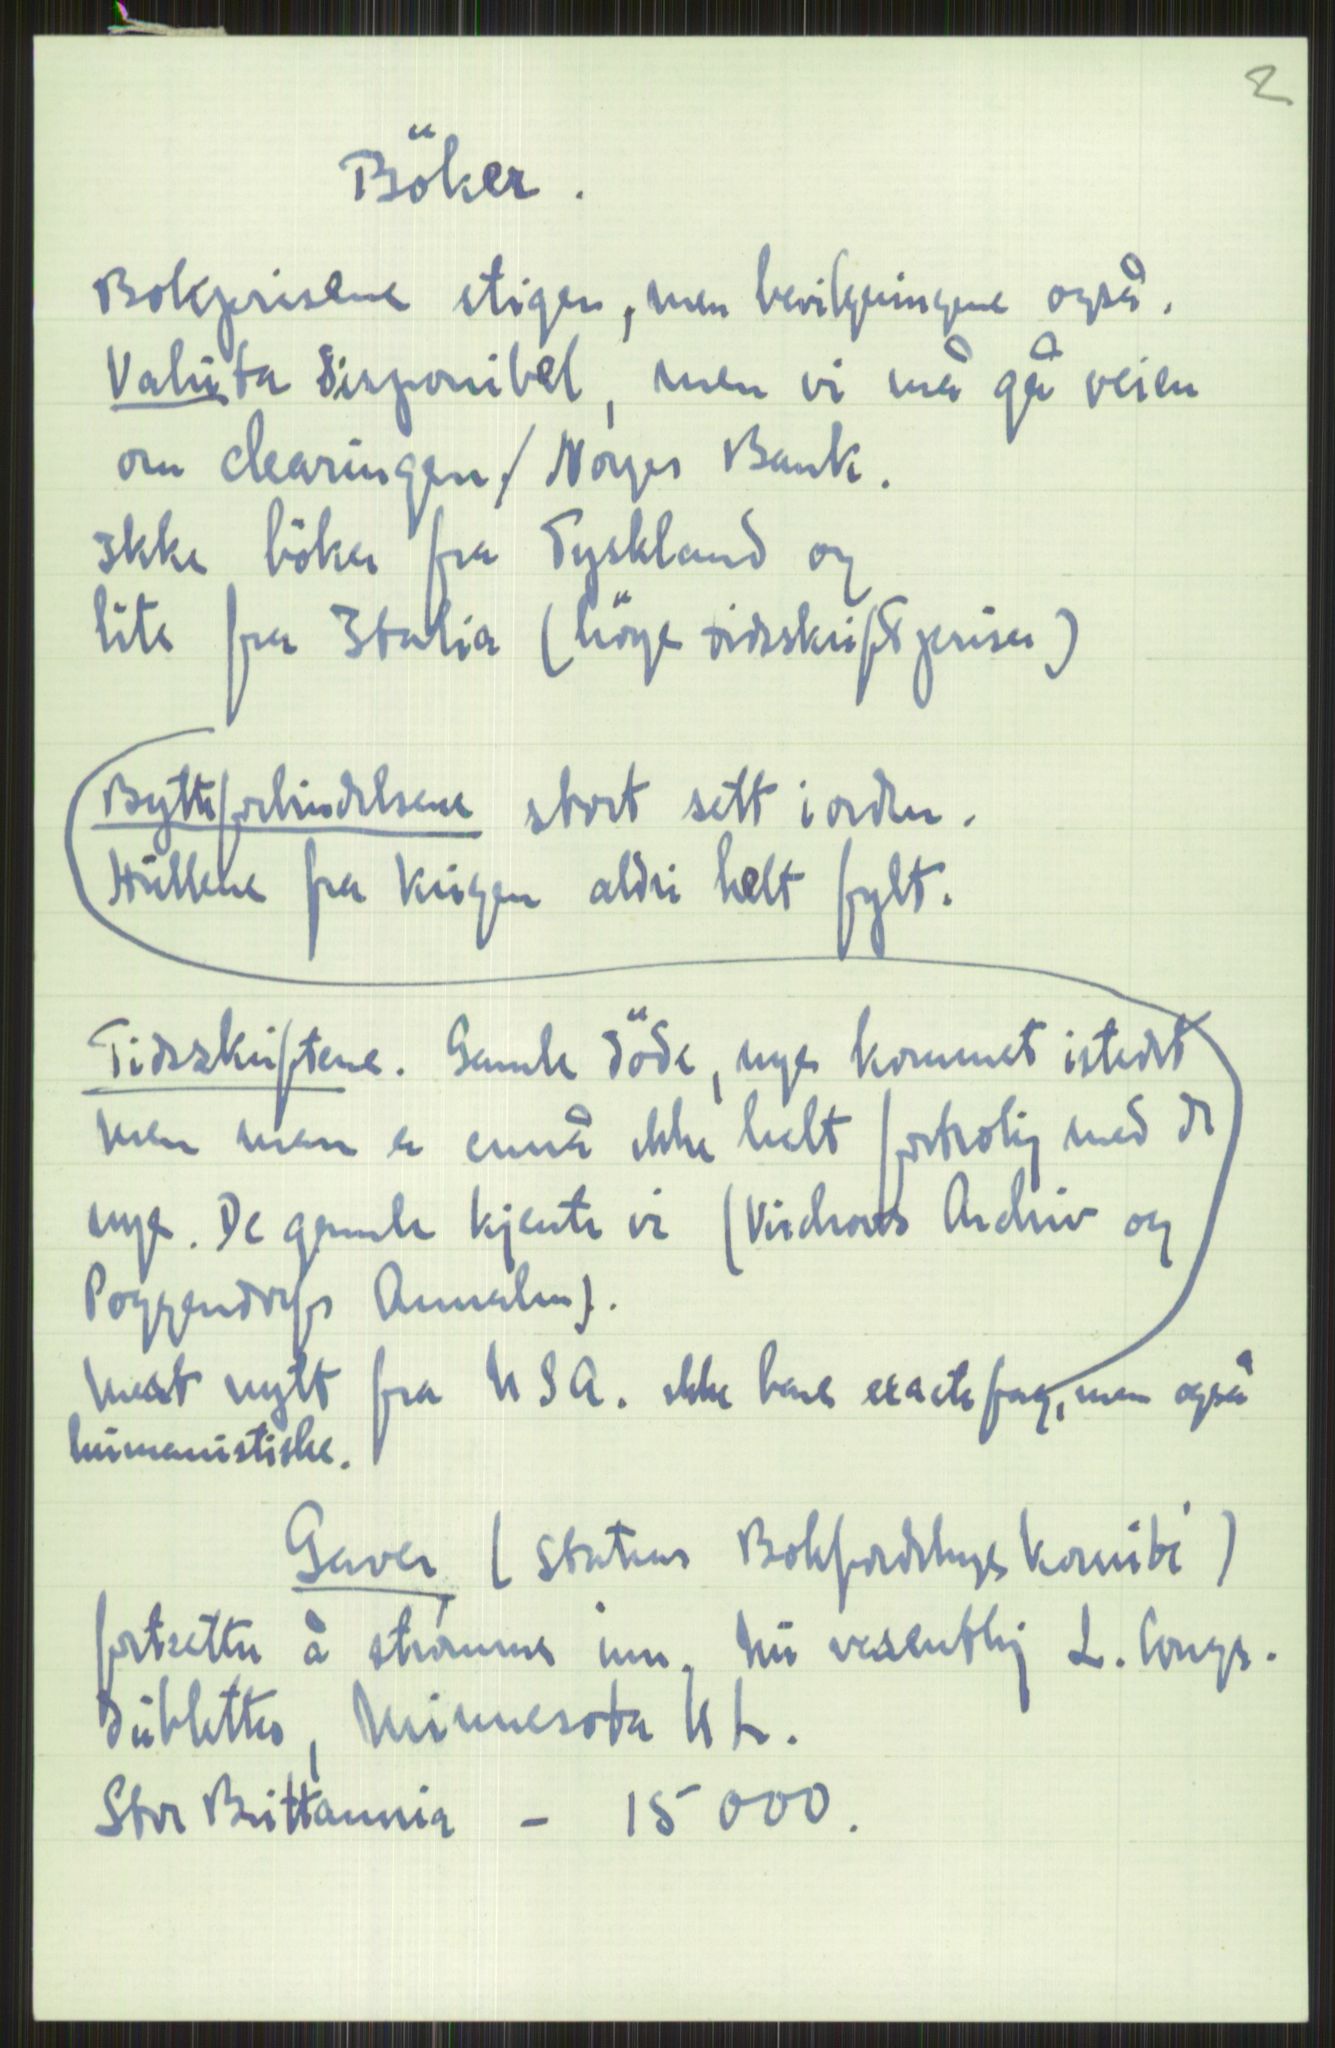 2
Böker.
Bokprisene stiger, men bevilgningene også.
Valuta disponibel, men vi må gå veien
om clearingen / Norges Bank.
Ikke böker fra Tyskland og
lite fra Italia (höye tidsskriftpriser)
Bytteforbindelsene stort sett i orden.
Hullene fra krigen aldri helt fylt.
Tidsskriftene. Gamle döde, nye kommet istedet
men man er ennå ikke helt fortrolig med de
nye. De gamle kjente vi (Virchows Archiv og
Poggendorfs Annalen).
Mest nytt fra USA. ikke bare exacte fag, men også
humanistiske.
Gaver (Statens Bokfordelings komité)
fortsetter å strömme inn. Nu vesentlig L. Congr.
dubletter, Minnesota UL.
Stor Brittannia - 15 000.